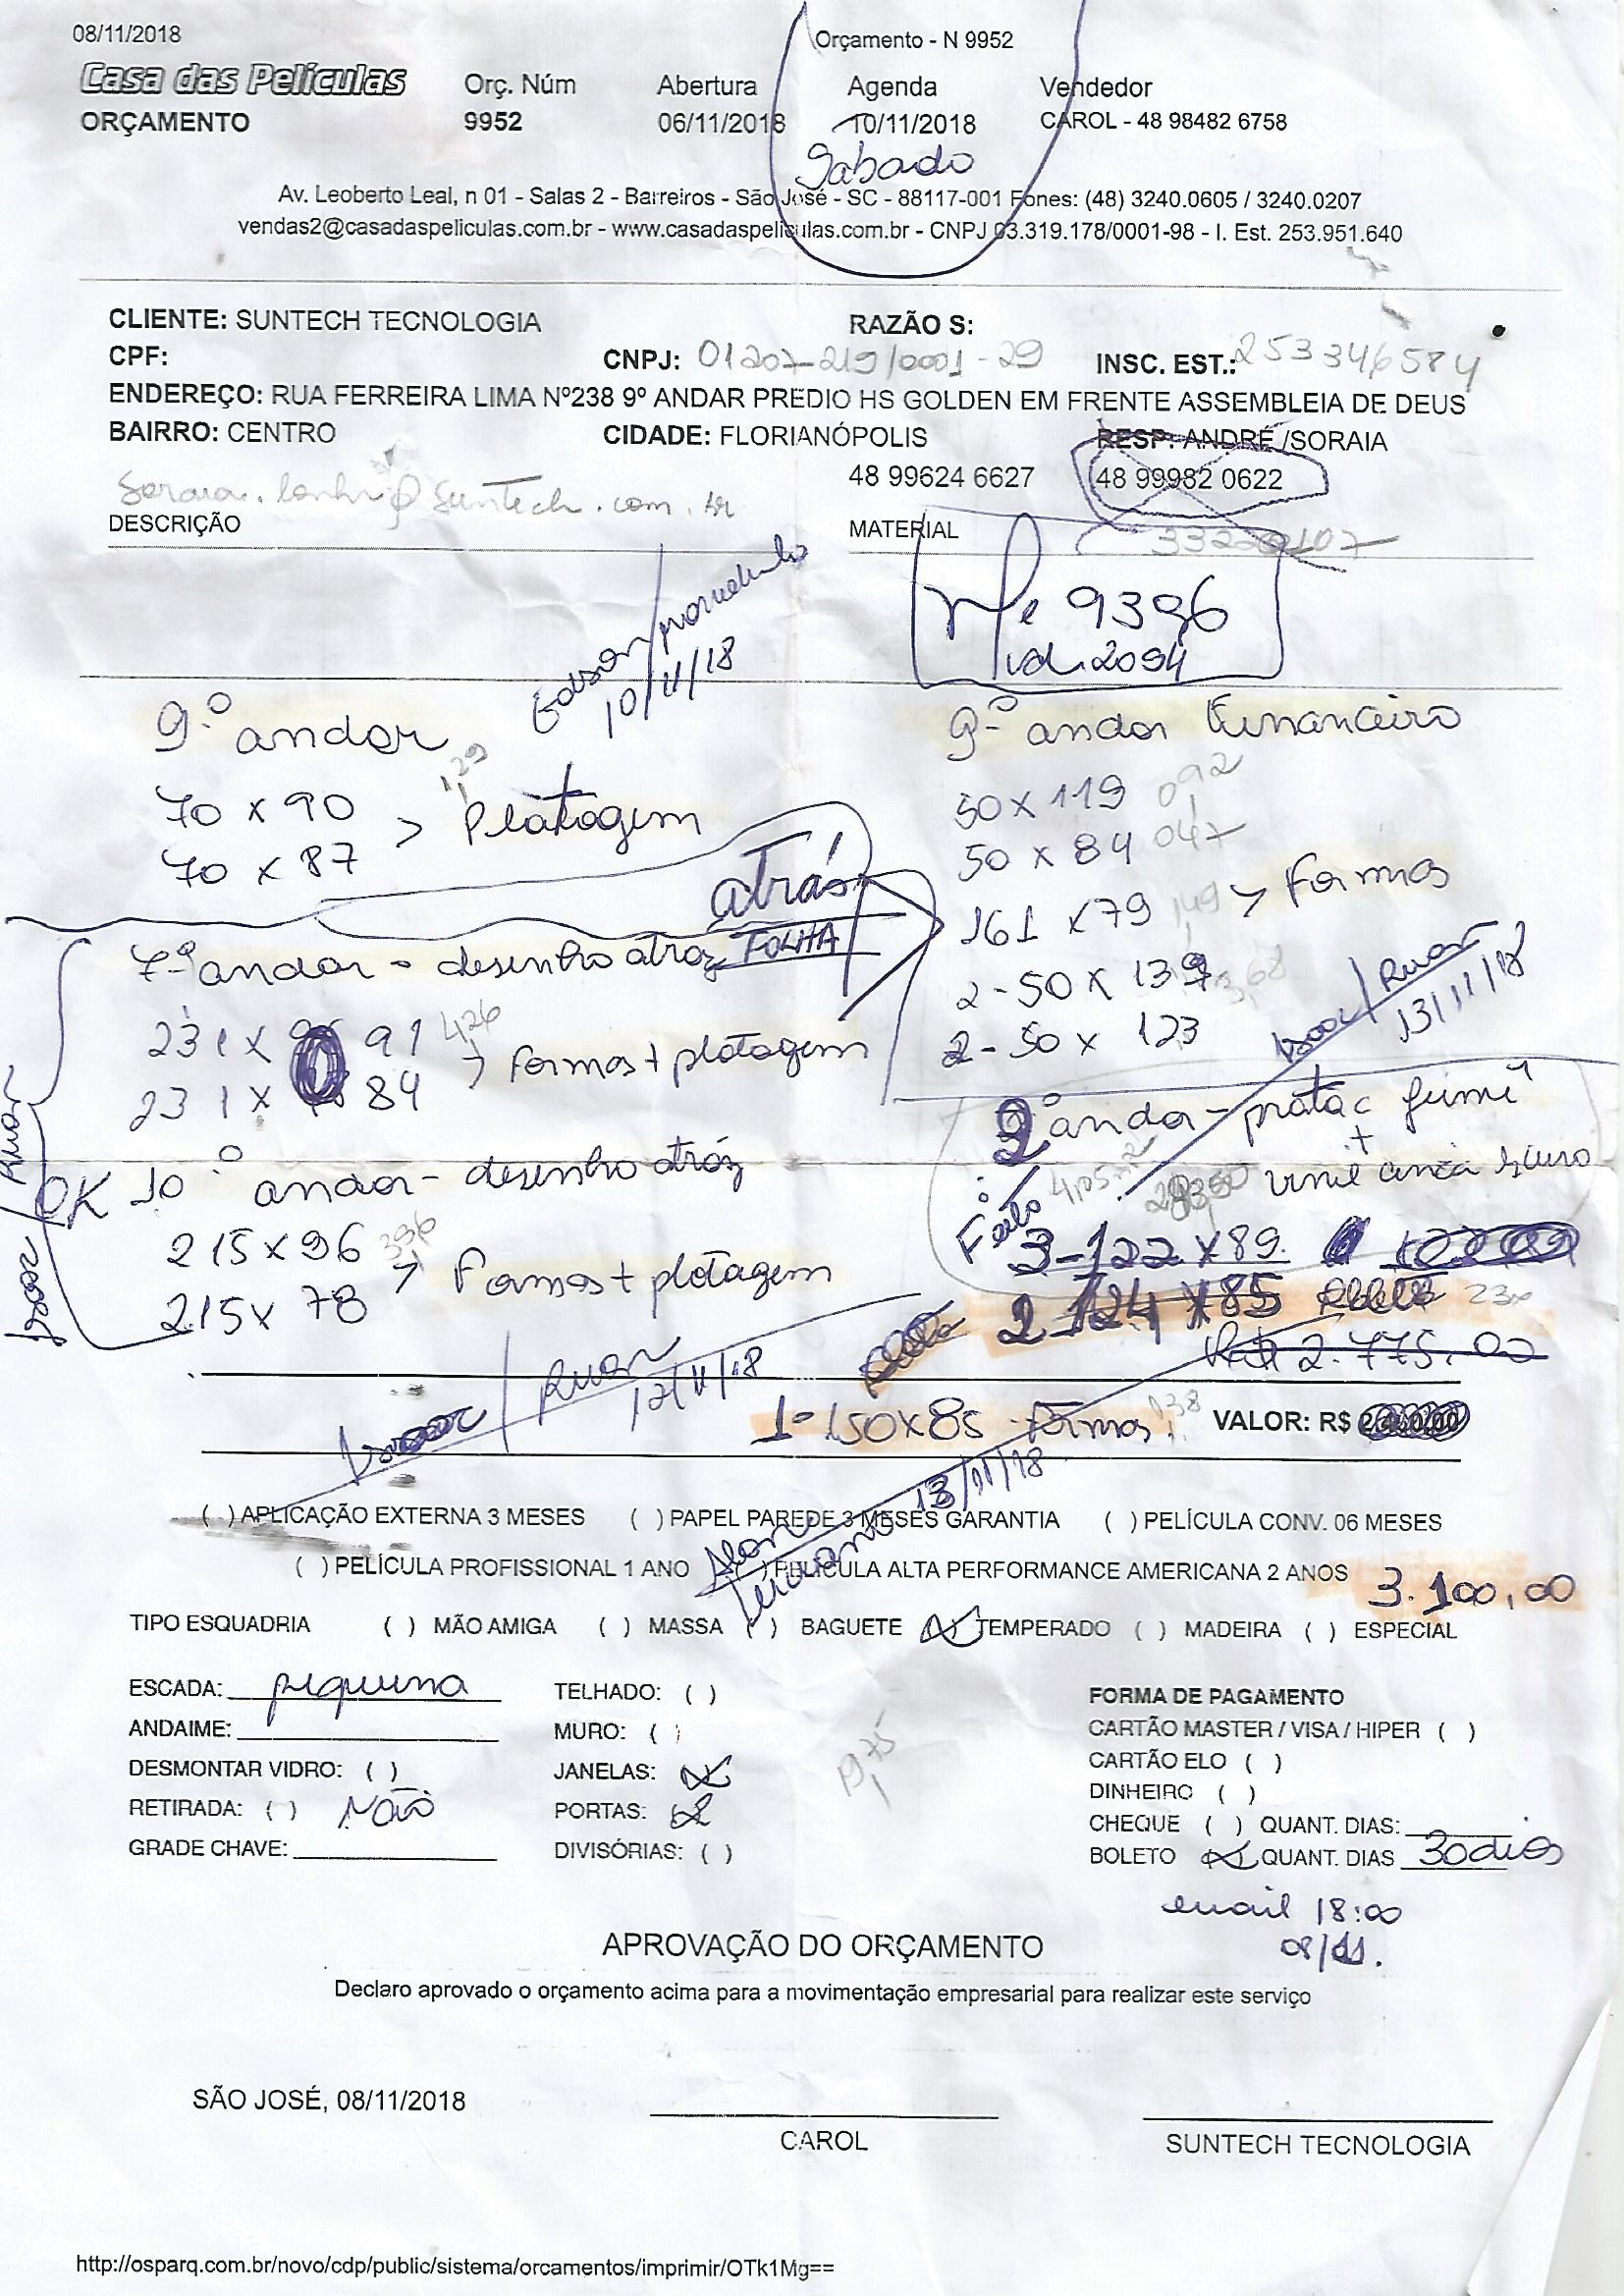 08/11/2018
Orçamento - N 9952
Casa das Películas
Orç. Núm
Abertura
Agenda
Vendedor
ORÇAMENTO
9952
06/11/2018
10/11/2018
CAROL - 48 98482 6758
Sabado
Av. Leoberto Leal, n 01 - Salas 2 - Barreiros - São José - SC - 88117-001 Fones: (48) 3240.0605 / 3240.0207
vendas2@casadaspeliculas.com.br - www.casadaspeliculas.com.br - CNPJ 03.319.178/0001-98 - I. Est. 253.951.640
CLIENTE: SUNTECH TECNOLOGIA
RAZÃO S:
CPF:
CNPJ: 01207-219/0001-29
INSC. EST.: 253346584
ENDEREÇO: RUA FERREIRA LIMA Nº238 9º ANDAR PREDIO HS GOLDEN EM FRENTE ASSEMBLEIA DE DEUS
BAIRRO: CENTRO
CIDADE: FLORIANÓPOLIS
RESP: ANDRÉ /SORAIA
48 99624 6627
48 99982 0622
@suntech.com.br
DESCRIÇÃO
MATERIAL
9396
vd. 2094
Edson/
10/11/18
9.º andar
1,29
70 x 90
> Plotagem
70 x 87
atrás
FOLHA
7º andar - desenho atraz
231 x 91 4,26
> Formas + plotagem
231 x 84
OK 10º andar - desenho atráz
215 x 96 3,96
> Formas + plotagem
215 x 78
Isaac / Ruan
Isaac / Ruan
12/11/18
9º andar Financeiro
50 x 119 092
50 x 84 047
161 x 79 149 > Formas
2 - 50 x 139 3,68
2 - 50 x 123
Isaac / Ruan
13/11/18
2º andar - prata c fumê
+
vinil cinza escuro
Feito
4,05m2
3 - 122 x 89
2 124 x 85
R$ 2.775,00
1 - 150 x 85 - Formas 138
VALOR: R$
13/11/18
( ) APLICAÇÃO EXTERNA 3 MESES
( ) PAPEL PAREDE 3 MESES GARANTIA
( ) PELÍCULA CONV. 06 MESES
( ) PELÍCULA PROFISSIONAL 1 ANO
( ) PELÍCULA ALTA PERFORMANCE AMERICANA 2 ANOS
3.100,00
TIPO ESQUADRIA
( ) MÃO AMIGA
( ) MASSA
( ) BAGUETE
(X) TEMPERADO
( ) MADEIRA
( ) ESPECIAL
ESCADA: pequena
TELHADO: ( )
FORMA DE PAGAMENTO
ANDAIME:
MURO: ( )
CARTÃO MASTER / VISA / HIPER ( )
DESMONTAR VIDRO: ( )
JANELAS: (X)
CARTÃO ELO ( )
19,75
DINHEIRO ( )
RETIRADA: ( ) Não
PORTAS: (X)
CHEQUE ( ) QUANT. DIAS:
GRADE CHAVE:
DIVISÓRIAS: ( )
BOLETO (X) QUANT. DIAS 30 dias
email 18:00
08/11.
APROVAÇÃO DO ORÇAMENTO
Declaro aprovado o orçamento acima para a movimentação empresarial para realizar este serviço
SÃO JOSÉ, 08/11/2018
CAROL
SUNTECH TECNOLOGIA
http://osparq.com.br/novo/cdp/public/sistema/orcamentos/imprimir/OTk1Mg==